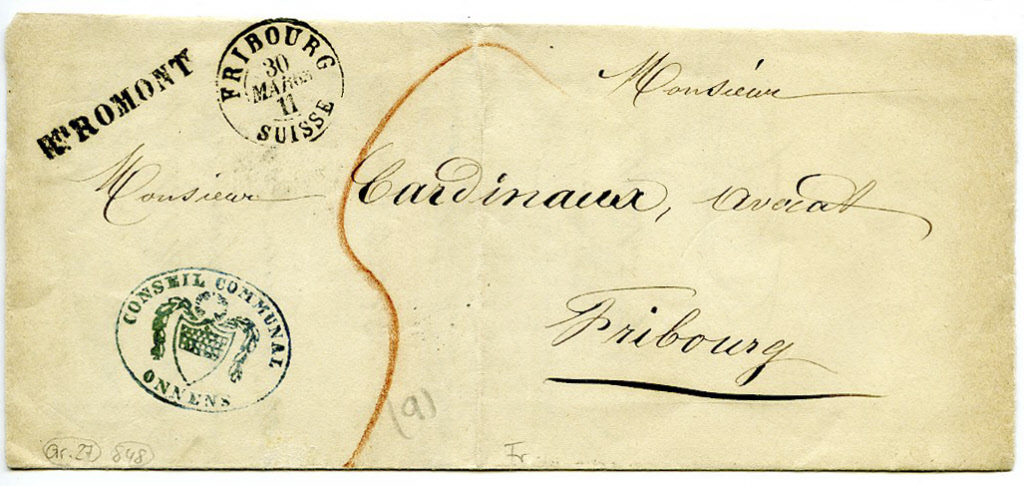 Rt ROMONT
FRIBOURG
30
MARS
11
SUISSE
Monsieur
Monsieur Cardinaux, avocat
Fribourg
CONSEIL COMMUNAL
ONNENS
(9)
Gr. 27 848
Fr